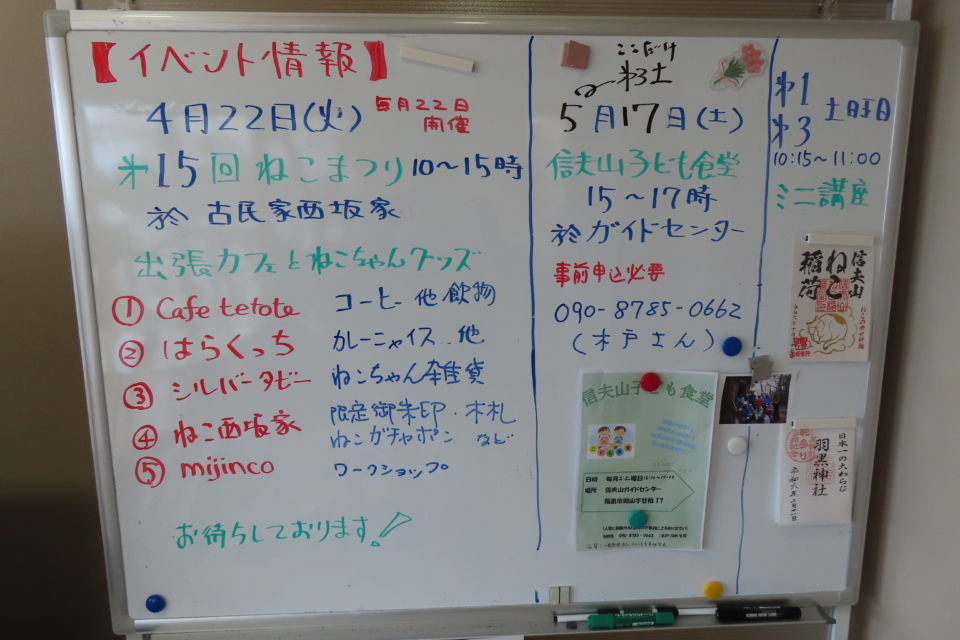 【イベント情報】
4月22日(火) 毎月22日
開催
第15回 ねこまつり 10〜15時
於 古民家西坂家
出張カフェとねこちゃんグッズ
① Cafe tetote コーヒー他飲物
② はらくっち カレーニャイス..他
③ シルバータビー ねこちゃん雑貨
④ ねこ西坂家 限定御朱印・木札
ねこガチャポン など
⑤ mijinco ワークショップ
お待ちしております!
ここだけ
第3土
5月17日(土)
信夫山子ども食堂
15〜17時
於ガイドセンター
事前申込必要
090-8785-0662
(木戸さん)
信夫山子ども食堂
場所 信夫山ガイドセンター
第1
第3 土日祝日
10:15〜11:00
ミニ講座
信夫山
ねこ
稲荷
日本一の大わらじ
羽黒神社